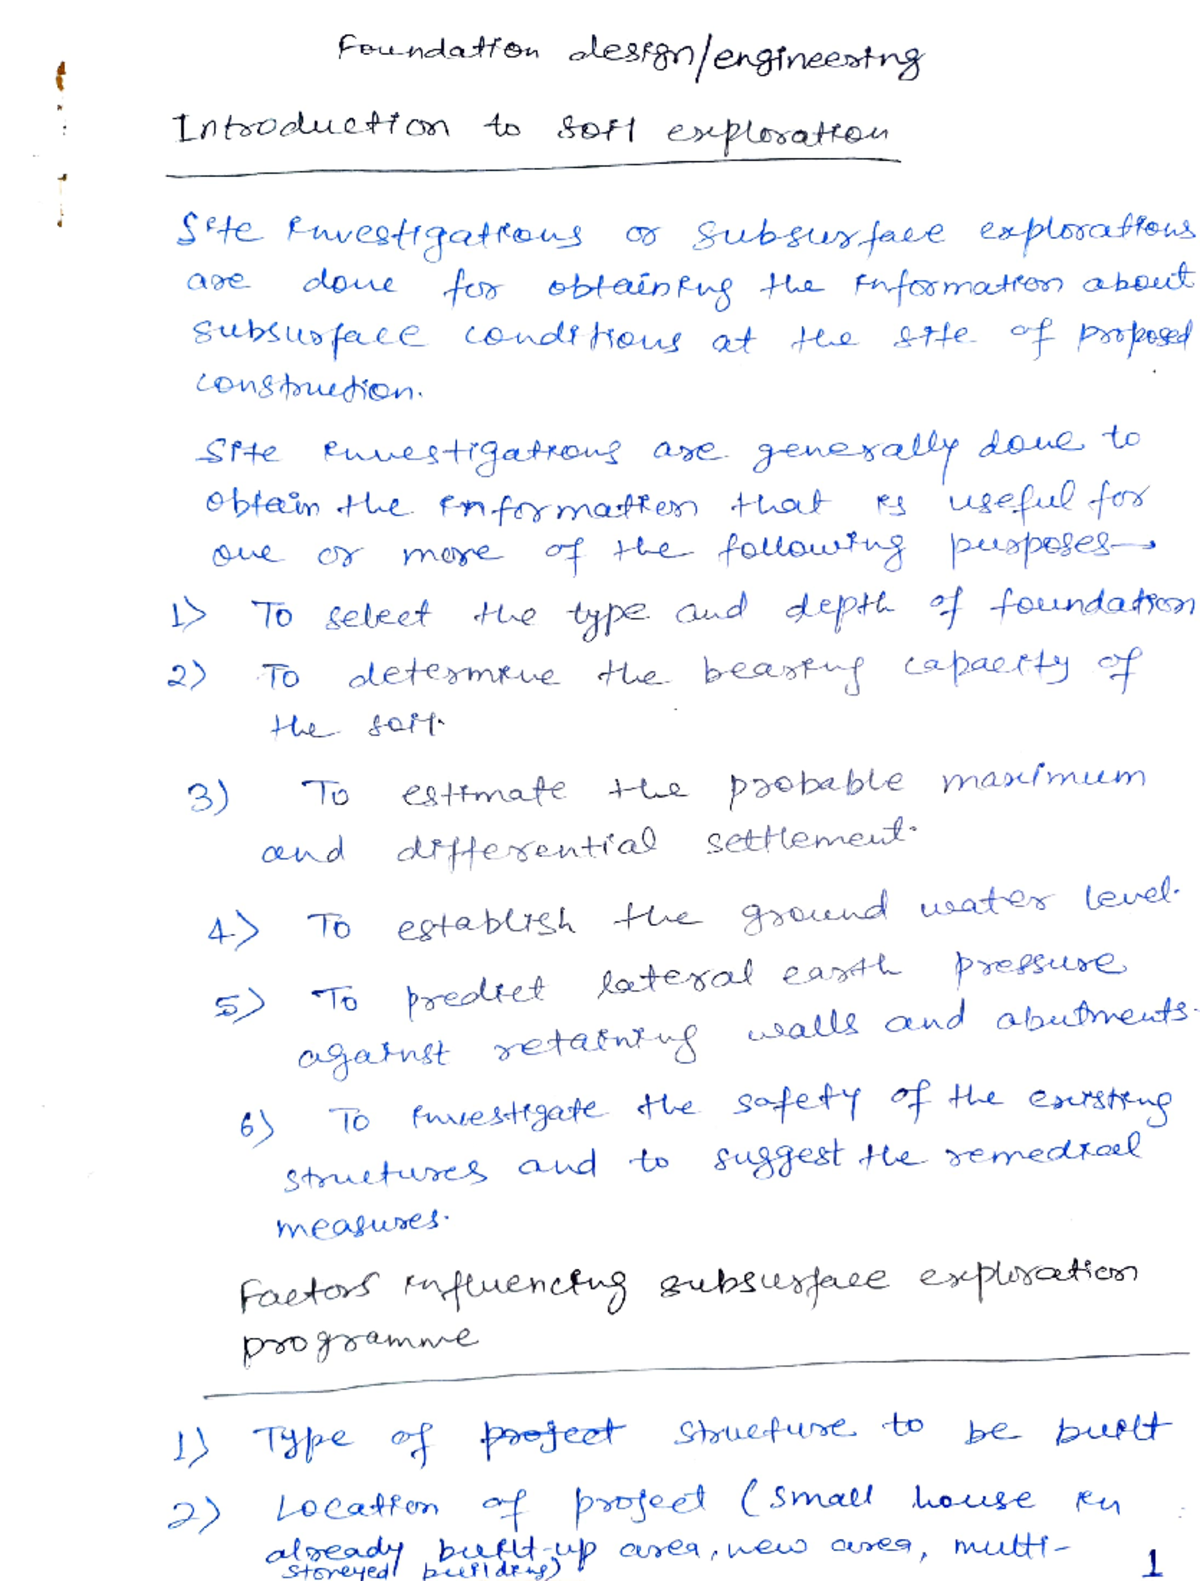 Foundation design/engineering
Introduction to soil exploration
Site investigations or subsurface explorations
are done for obtaining the information about
subsurface conditions at the site of proposed
construction.
Site investigations are generally done to
obtain the information that is useful for
one or more of the following purposes→
1) To select the type and depth of foundation
2) To determine the bearing capacity of
the soil.
3) To estimate the probable maximum
and differential settlement.
4) To establish the ground water level.
5) To predict lateral earth pressure
against retaining walls and abutments.
6) To investigate the safety of the existing
structures and to suggest the remedial
measures.
Factors influencing subsurface exploration
programme
1) Type of project structure to be built
2) Location of project (small house in
already built-up area, new area, multi-
storeyed building)
1